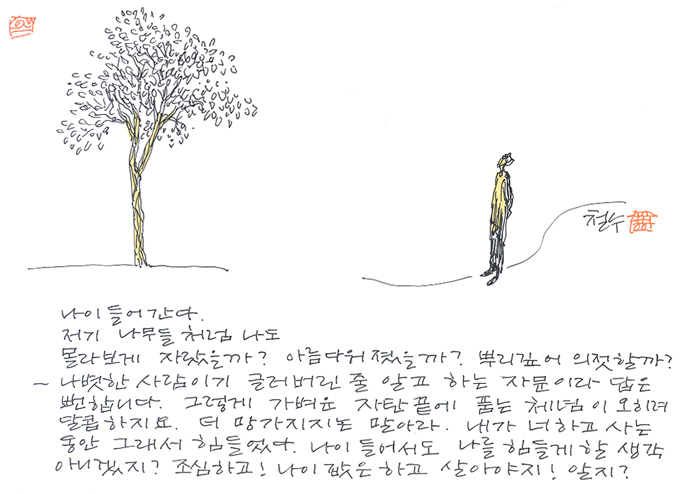 철수
나이 들어 간다.
저기 나무들 처럼 나도
몰라보게 자랐을까? 아름다워졌을까? 뿌리깊어 의젓할까?
~ 나볏한 사람이기 글러버린 줄 알고 하는 자문이라 답은
뻔합니다. 그렇게 가벼운 자탄 끝에 품는 체념이 오히려
달콤하지요. 더 망가지지는 말아라. 내가 너하고 사는
동안 그래서 힘들었다. 나이 들어서도 나를 힘들게 할 생각
아니겠지? 조심하고! 나이 값은 하고 살아야지! 알지?